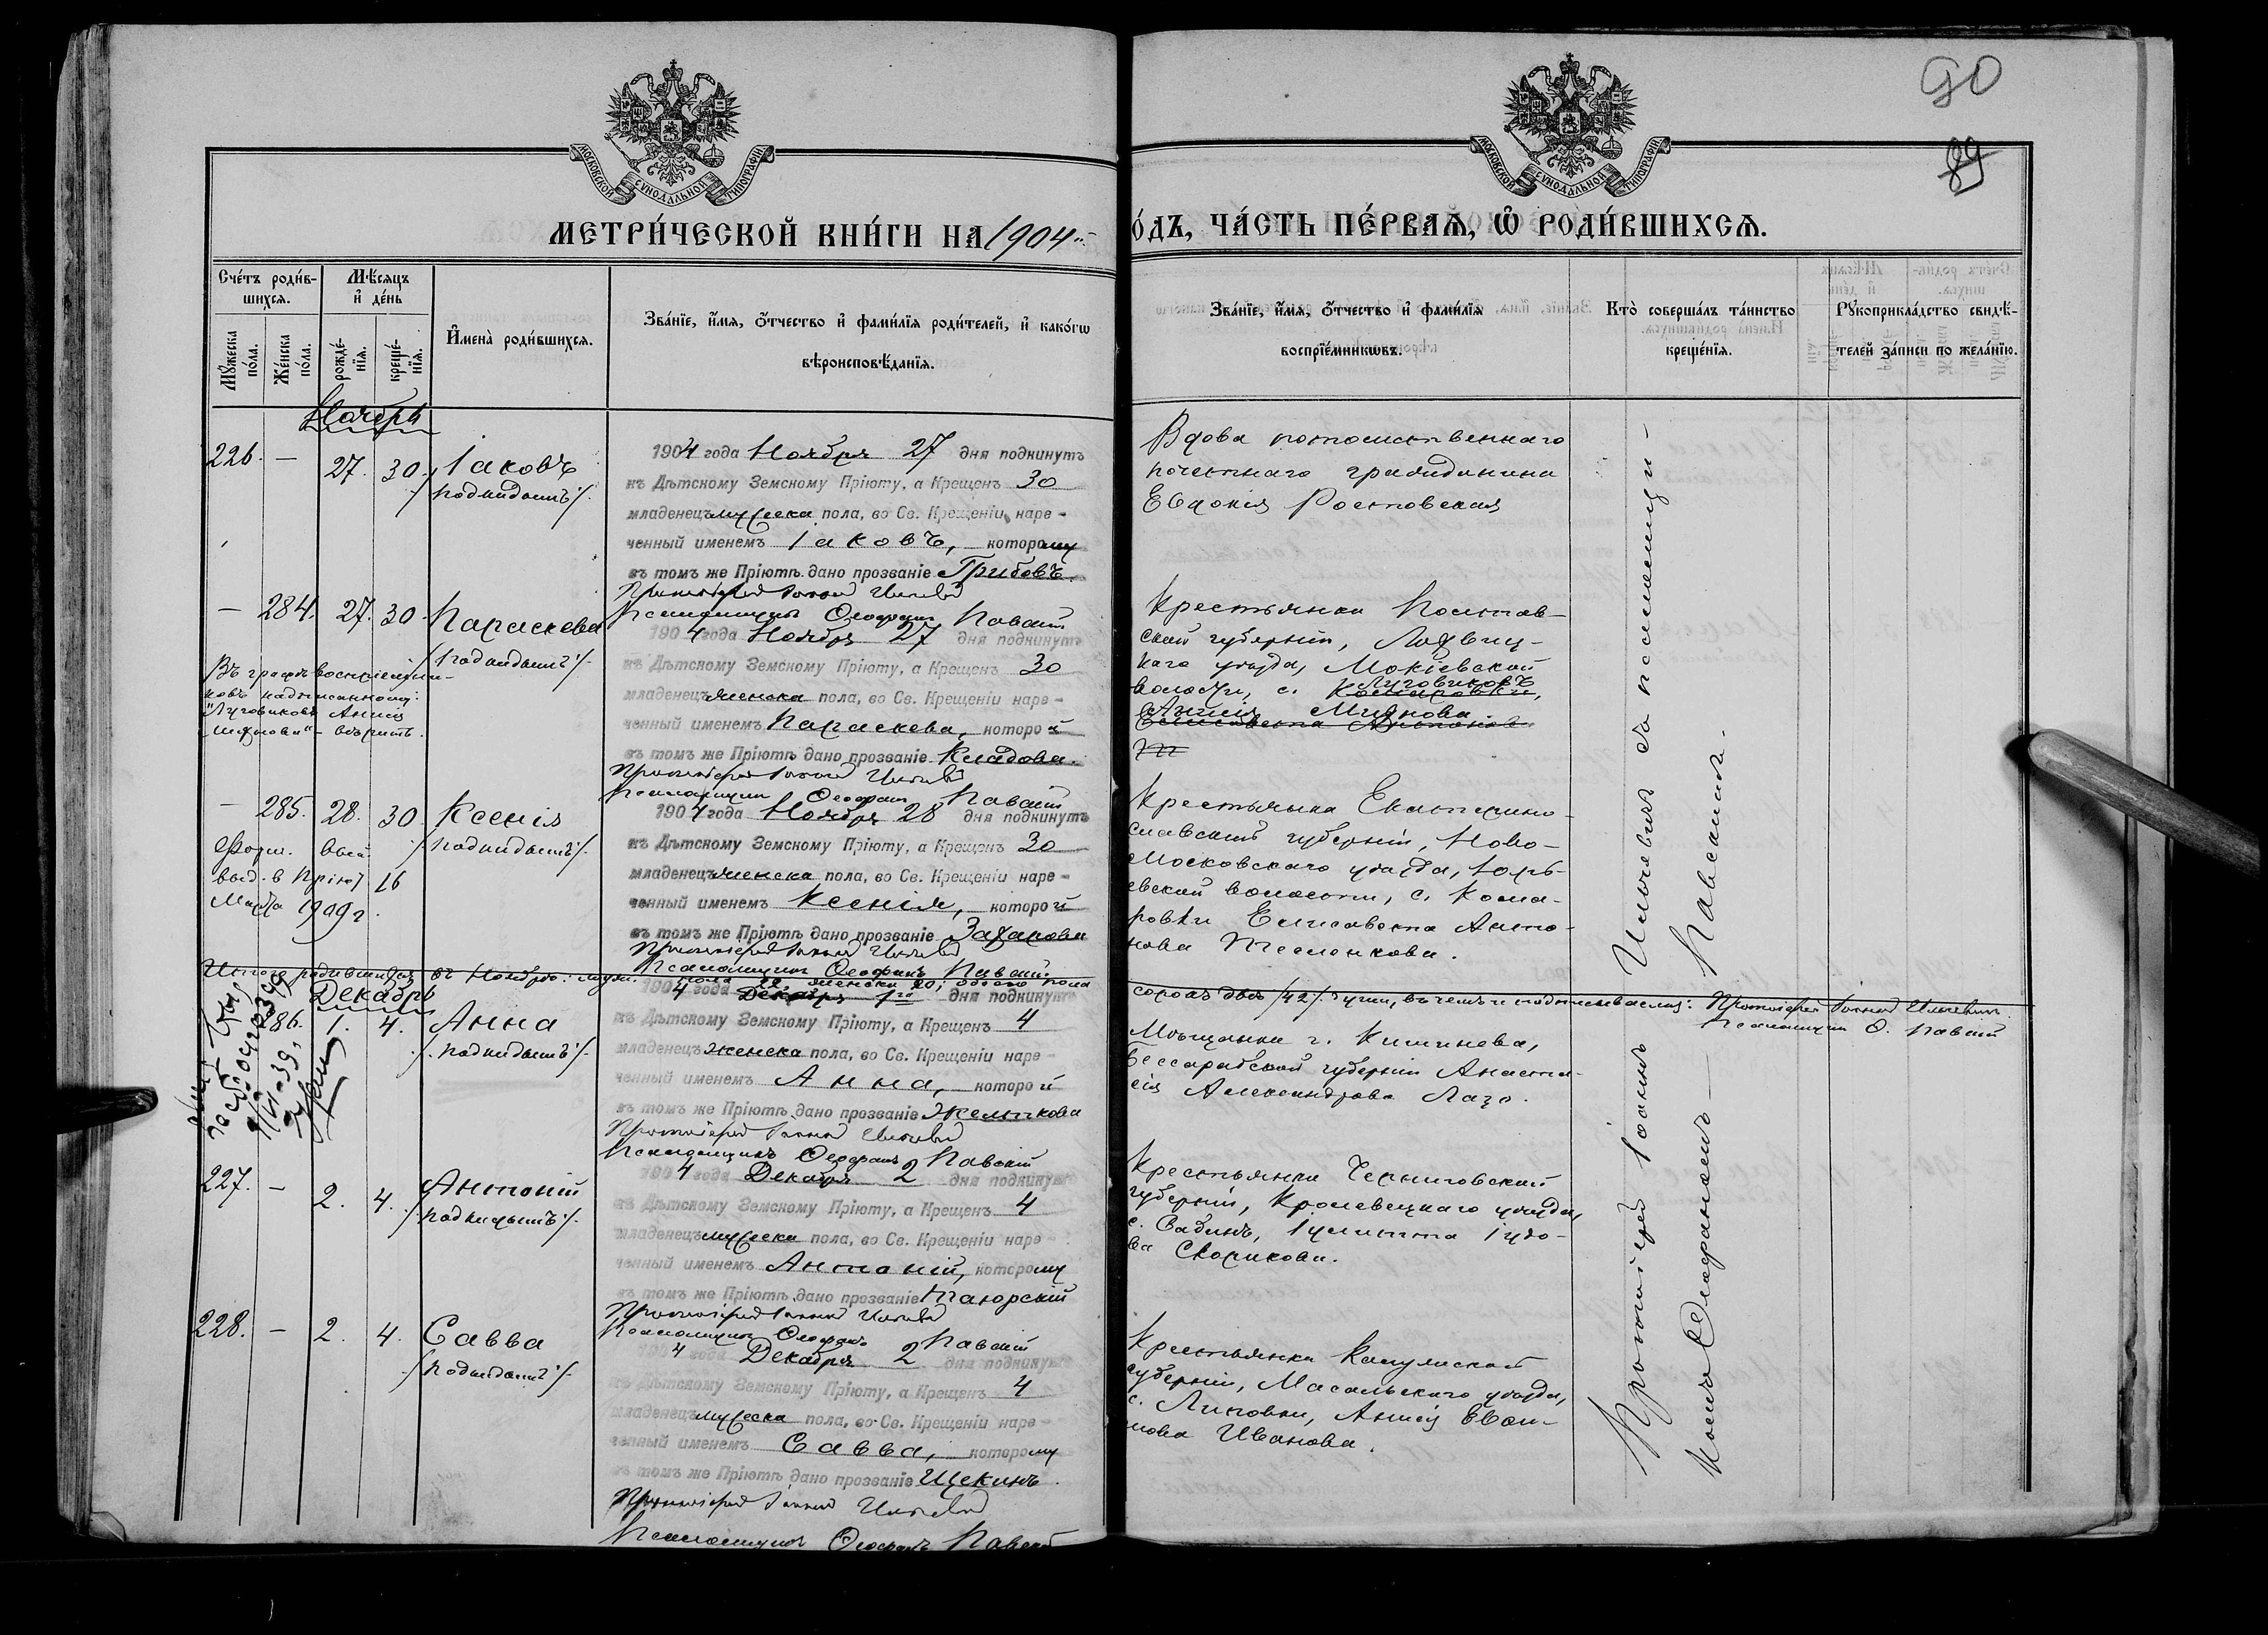 90
89
МОСКОВСКОЙ СѴНОДАЛЬНОЙ ТИПОГРАФІИ
МОСКОВСКОЙ СѴНОДАЛЬНОЙ ТИПОГРАФІИ
МЕТРИ́ЧЕСКОЙ КНИ́ГИ НА 1904
О́ДЪ, ЧА́СТЬ ПЕ́РВАѦ, Ѡ҆ РОДИ́ВШИХСѦ.
Сче́тъ роди́в-
шихсѧ.
Мꙋ́жеска по́ла.
Же́нска по́ла.
Мѣ́сѧцъ
и҆ де́нь
рожде́-
нїѧ.
креще́-
нїѧ.
И҆мена̀ роди́вшихсѧ.
Зва́нїе, и҆́мѧ, ѻ҆́тчество и҆ фами́лїѧ роди́телей, и҆ како́гѡ
вѣроисповѣ́данїѧ.
Зва́нїе, и҆́мѧ, ѻ҆́тчество и҆ фами́лїѧ
воспрїе́мникѡвъ.
Кто̀ соверша́лъ та́инство
креще́нїѧ.
Рꙋкоприкла́дство свидѣ́-
телей за́писи по жела́нїю.
Ноябрь
226. — 27. 30. Іаковъ
/подкидышъ/.
1904 года Ноября 27 дня подкинутъ
къ Дѣтскому Земскому Пріюту, а Крещенъ 30
младенецъ мужеска пола, во Св. Крещеніи наре-
ченный именемъ Іаковъ, которому
въ томъ же Пріютѣ дано прозваніе Грибовъ.
Протоіерей Іоаннъ
Псаломщикъ Ѳеофанъ Павскій
Вдова потомственнаго
почетнаго гражданина
Евдокія Ростовская
— 284. 27. 30. Параскева
/подкидышъ/.
Въ графѣ воспріемни-
ковъ надписанному:
"Луговиковъ Анисія
Миднова" - вѣрить.
1904 года Ноября 27 дня подкинутъ
къ Дѣтскому Земскому Пріюту, а Крещенъ 30
младенецъ женска пола, во Св. Крещеніи наре-
ченный именемъ Параскева, которой
въ томъ же Пріютѣ дано прозваніе Кладова.
Протоіерей Іоаннъ
Псаломщикъ Ѳеофанъ Павскій
Крестьянка Полтав-
ской губерніи, Лохвиц-
каго уѣзда, Мокіевской
Луговиковъ
волости, с. Комаровки,
Анисія Миднова
Елисавета Антонова
— 285. 28. 30. Ксенія
/подкидышъ/.
выд. в Пріют 16
Марта 1909 г.
1904 года Ноября 28 дня подкинутъ
къ Дѣтскому Земскому Пріюту, а Крещенъ 30
младенецъ женска пола, во Св. Крещеніи наре-
ченный именемъ Ксенія, которой
въ томъ же Пріютѣ дано прозваніе Захарова
Протоіерей Іоаннъ
Псаломщикъ Ѳеофанъ Павскій.
Крестьянка Екатерино-
славской губерніи, Ново-
московскаго уѣзда, Юрь-
евской волости, с. Кома-
ровки Елисавета Анто-
нова Тесленкова.
Итого родившихся въ Ноябрѣ: муж. пола 22, женска 20; обоего пола
сорокъ два /42/ души, въ чемъ и подписываемся: Протоіерей Іоаннъ
Псаломщикъ Ѳ. Павскій
Декабрь
286. 1. 4. Анна
/подкидышъ/.
1904 года Декабря 1го дня подкинутъ
къ Дѣтскому Земскому Пріюту, а Крещенъ 4
младенецъ женска пола, во Св. Крещеніи наре-
ченный именемъ Анна, которой
въ томъ же Пріютѣ дано прозваніе Желткова
Протоіерей Іоаннъ
Псаломщикъ Ѳеофанъ Павскій
Мѣщанка г. Кишинева,
Бессарабской губерніи Анаста-
сія Александрова Лазо.
227. — 2. 4. Антоній
/подкидышъ/.
1904 года Декабря 2 дня подкинутъ
къ Дѣтскому Земскому Пріюту, а Крещенъ 4
младенецъ мужеска пола, во Св. Крещеніи наре-
ченный именемъ Антоній, которому
въ томъ же Пріютѣ дано прозваніе
Протоіерей Іоаннъ
Псаломщикъ Ѳеофанъ Павскій
Крестьянка Черниговской
губерніи, Кролевецкаго уѣзда,
с. Іулитта
Скорикова.
228. — 2. 4. Савва
/подкидышъ/.
1904 года Декабря 2 дня подкинутъ
къ Дѣтскому Земскому Пріюту, а Крещенъ 4
младенецъ мужеска пола, во Св. Крещеніи наре-
ченный именемъ Савва, которому
въ томъ же Пріютѣ дано прозваніе Щекинъ.
Протоіерей Іоаннъ
Псаломщикъ Ѳеофанъ Павскій
Крестьянка Калужской
губерніи, Масальскаго уѣзда,
с. Липовки, Анисія
Иванова.
Протоіерей Іоаннъ съ псаломщи-
комъ Ѳеофаномъ Павскимъ.